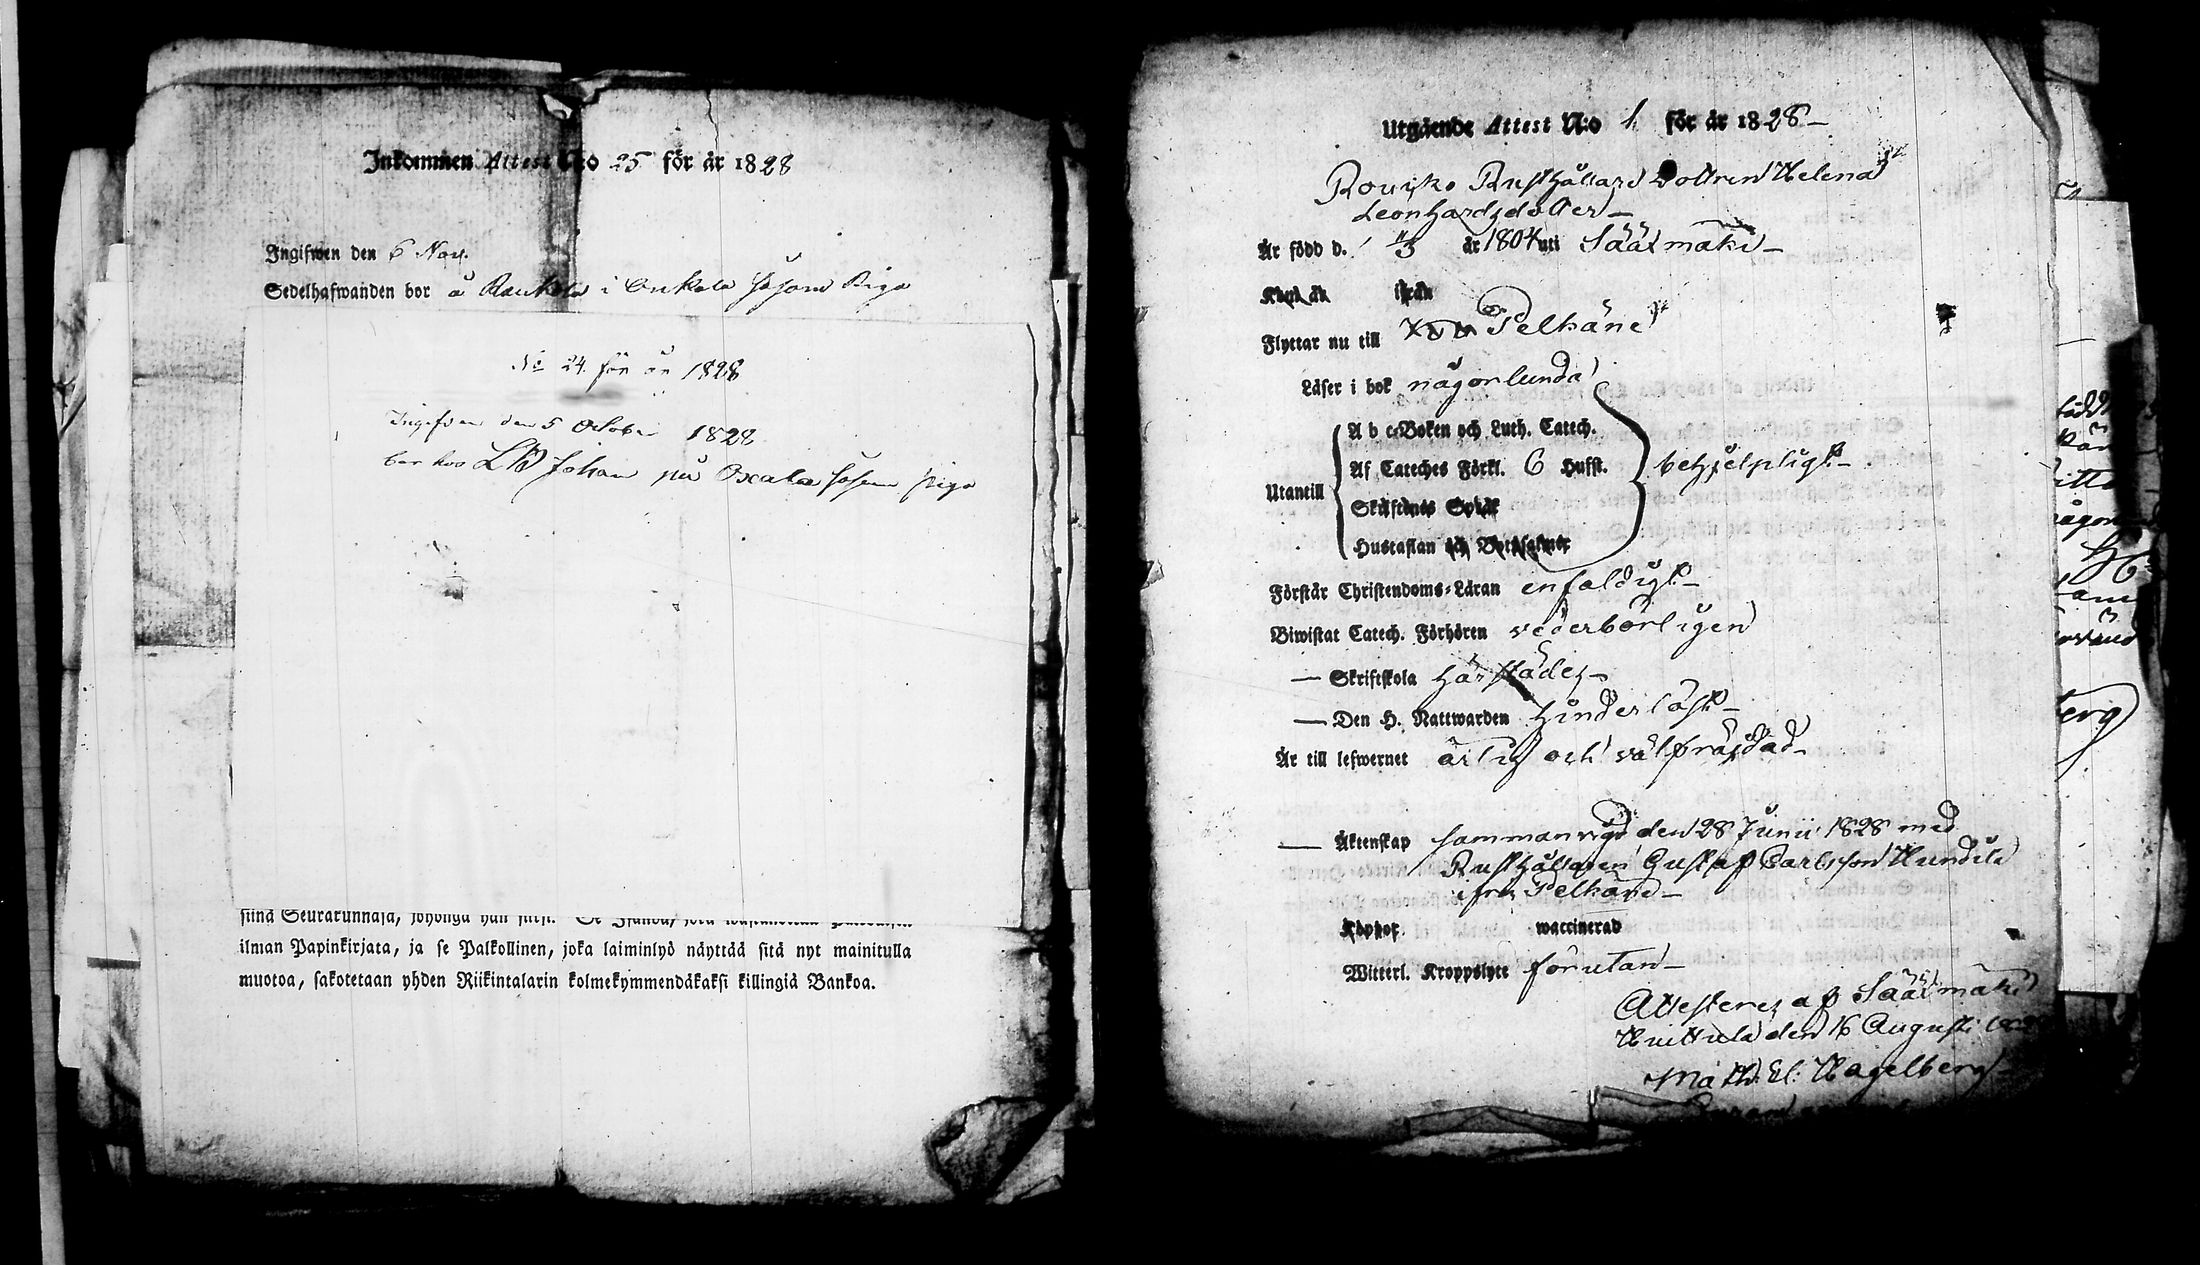 Inkommen Attest N:o 25 för år 1828
Ingifwen den 6 Nov.
Sedelhafwanden bor å Raukola i Onkala såsom Piga
No 24. för år 1828
Ingifven den 5 October 1828
bor hos Johan på såsom piga
ilman Papinkirjata, ja se Palkollinen, joka laiminlyö näyttää sitä nyt mainitulla
muotoa, sakotetaan yhden Riikintalarin kolmekymmendäkaksi killingiä Bankoa.
Utgående Attest N:o 1 för år 1828
Rouko Rusthållare Dottren Helena
Leonhardsdotter
Är född d. år 1804 uti Sääxmäki
ifrån
Flyttar nu till Pelkäne
Läser i bok någorlunda
Utantill
A b c-Boken och Luth. Catech.
Af Cateches Förkl. 6 Hufst.
Skriftenes Språk
Hustaflan och Botpsalmer
behjelpligt
Förstår Christendoms-Läran enfaldigt
Biwistat Catech. Förhören vederbörligen
— Skriftskola härstädes
— Den H. Nattwarden hinderlöst
Är till lefwernet ärlig och välfräjdad
— Äktenskap sammanvigd den 28 Junii 1828 med
Rusthållaren Gustaf Carlsson Hundila
ifrån Pelkäne
Koppor waccinerad
Witterl. Kroppslyte förutan
Attesteres af Sääxmäki
Huittula den 16 Augusti
Math. El. Hagelberg